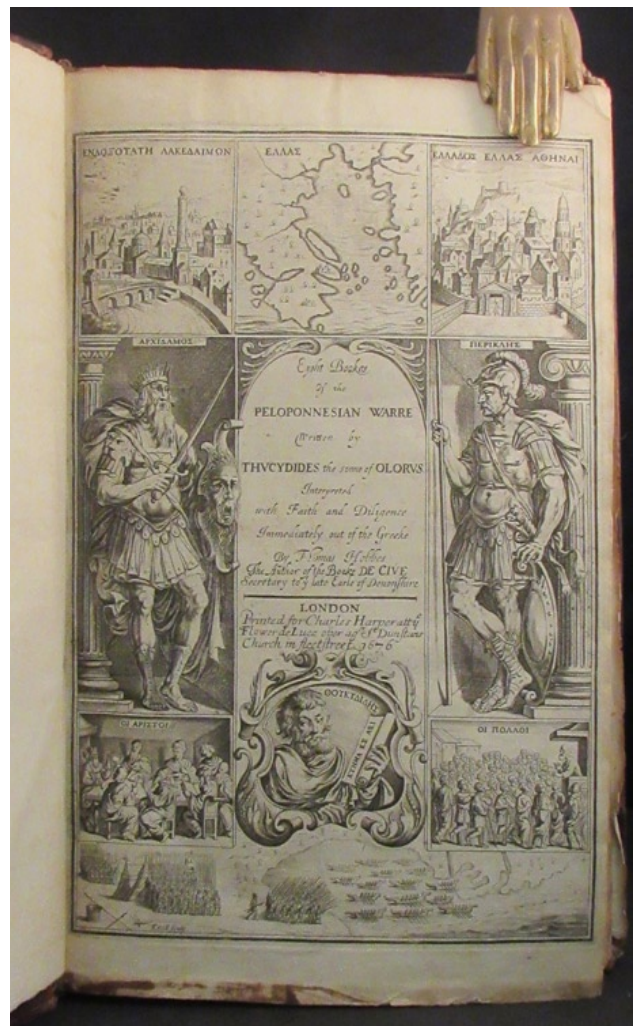 ΕΝΔΟΞΟΤΑΤΗ ΛΑΚΕΔΑΙΜΩΝ
ΕΛΛΑΣ
ΕΛΛΑΔΟΣ ΕΛΛΑΣ ΑΘΗΝΑΙ
ΑΡΧΙΔΑΜΟΣ
ΠΕΡΙΚΛΗΣ
Eight Bookes
Of the
PELOPONNESIAN WARRE
Written by
THVCYDIDES the sonne of OLORVS
Interpreted
with Faith and Diligence
Immediately out of the Greeke
By Thomas Hobbes
The Author of the Booke DE CIVE
Secretary to yͤ late Earle of Devonshire
LONDON
Printed for Charles Harper att yͤ
Flower de Luce over ag Sͭ Dunstans
Church in fleetstreet. 1676
ΘΟΥΚΥΔΙΔΗΣ
ΚΤΗΜΑ ΕΣ ΑΕΙ
ΟΙ ΑΡΙΣΤΟΙ
ΟΙ ΠΟΛΛΟΙ